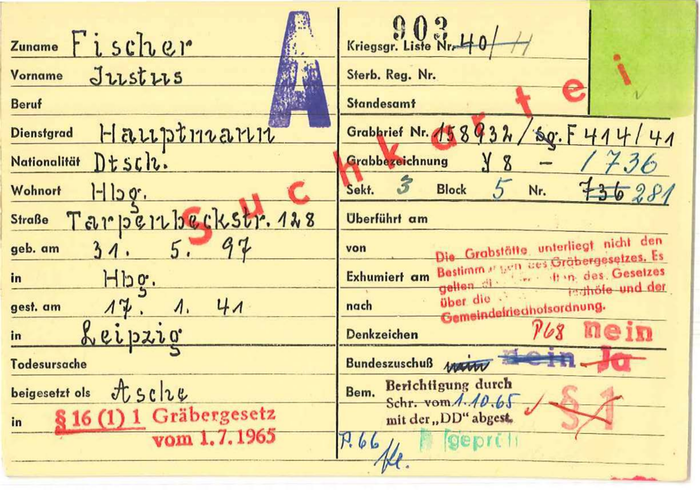 Zuname Fischer
Vorname Justus
Beruf
Dienstgrad Hauptmann
Nationalität Dtsch.
Wohnort Hbg.
Straße Tarpenbeckstr. 128
geb. am 31. 5. 97
in Hbg.
gest. am 17. 1. 41
in Leipzig
Todesursache
beigesetzt als Asche
in § 16 (1) 1 Gräbergesetz
vom 1.7.1965
A
Suchkartei
903
Kriegsgr. Liste Nr. 40/11
Sterb. Reg. Nr.
Standesamt
Grabbrief Nr. 158932/sg. F 414/41
Grabbezeichnung Y 8 - 1736
Sekt. 3 Block 5 Nr. 736 281
Überführt am
von
Exhumiert am
nach
Die Grabstätte unterliegt nicht den
des Gräbergesetzes. Es
gelten des Gesetzes
über die und der
Gemeindefriedhofsordnung.
Denkzeichen P68 nein
Bundeszuschuß nein nein Ja
Bem. Berichtigung durch
Schr. vom 1.10.65
mit der „DD" abgest.
§ 1
P. 66 geprüft